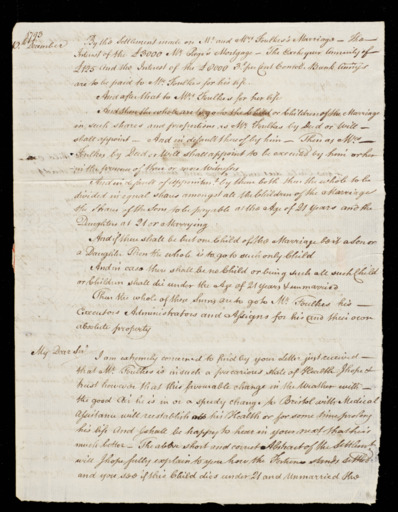 1793
12 December
By the Settlement made on Mr and Mrs Foulkes's Marriage — The
Interest of the £3000 Mr Mortgage — The Exchequer Annuity of
£195 and the Interest of the £6000 3 per Cent Consol. Bank Annuitys
are to be paid to Mr Foulkes for his life —
And after that to Mrs Foulkes for her life
And then the whole are to go to the Child or Children of the Marriage
in such shares and proportions as Mr Foulkes by Deed or Will —
shall appoint — And in default thereof by him — Then as Mrs —
Foulkes by Deed or Will shall appoint to be executed by him or her
in the presence of two or more Witnesses
And in default of appointment by them both then the whole to be
divided in equal Shares amongst all the Children of the Marriage
the Share of the Sons to be payable at the Age of 21 Years and the
Daughters at 21 or Marrying
And if there shall be but one Child of the Marriage be it a Son or
a Daughter Then the whole is to go to such only Child
And in case there shall be no Child or being such all such Child
or Children shall die under the Age of 21 years & unmarried
Then the whole of these Sums are to go to Mr Foulkes his —
Executors Administrators and Assigns for his and their own
absolute property
My Dear Sir
I am extremely concerned to find by your letter just received —
that Mr Foulkes is in such a precarious state of Health I hope &
trust however that this favourable change in the Weather with —
the good Air he is in or a speedy change to Bristol with Medical
Assistance will reestablish his Health or for some time prolong
his life And I shall be happy to hear in your next that he is
much better — The above short and correct Abstract of the Settlement
will I hope fully explain to you how the Fortune stands settled
and you see if this Child dies under 21 and Unmarried the